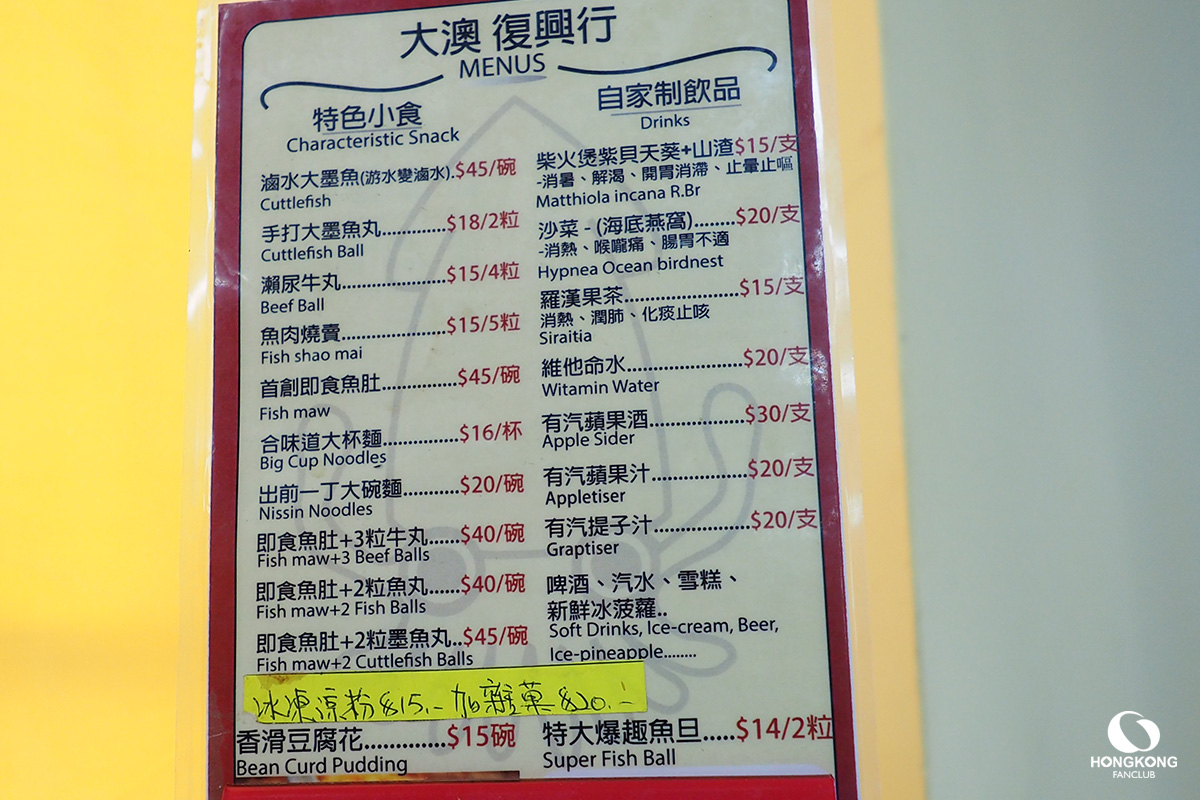 大澳 復興行
MENUS
特色小食
Characteristic Snack
滷水大墨魚(游水變滷水).$45/碗
Cuttlefish
手打大墨魚丸.............$18/2粒
Cuttlefish Ball
瀨尿牛丸.....................$15/4粒
Beef Ball
魚肉燒賣.....................$15/5粒
Fish shao mai
首創即食魚肚...............$45/碗
Fish maw
合味道大杯麵...............$16/杯
Big Cup Noodles
出前一丁大碗麵...........$20/碗
Nissin Noodles
即食魚肚+3粒牛丸......$40/碗
Fish maw+3 Beef Balls
即食魚肚+2粒魚丸......$40/碗
Fish maw+2 Fish Balls
即食魚肚+2粒墨魚丸..$45/碗
Fish maw+2 Cuttlefish Balls
自家制飲品
Drinks
柴火煲紫貝天葵+山渣$15/支
-消暑、解渴、開胃消滯、止暈止嘔
Matthiola incana R.Br
沙菜 - (海底燕窩)........$20/支
-消熱、喉嚨痛、腸胃不適
Hypnea Ocean birdnest
羅漢果茶.......................$15/支
消熱、潤肺、化痰止咳
Siraitia
維他命水.......................$20/支
Witamin Water
有汽蘋果酒...................$30/支
Apple Sider
有汽蘋果汁...................$20/支
Appletiser
有汽提子汁...................$20/支
Graptiser
啤酒、汽水、雪糕、
新鮮冰菠蘿..
Soft Drinks, Ice-cream, Beer,
Ice-pineapple........
冰凍涼粉 $15.- 加雜菓 $20.-
香滑豆腐花...............$15碗
Bean Curd Pudding
特大爆趣魚旦.....$14/2粒
Super Fish Ball
HONGKONG
FANCLUB